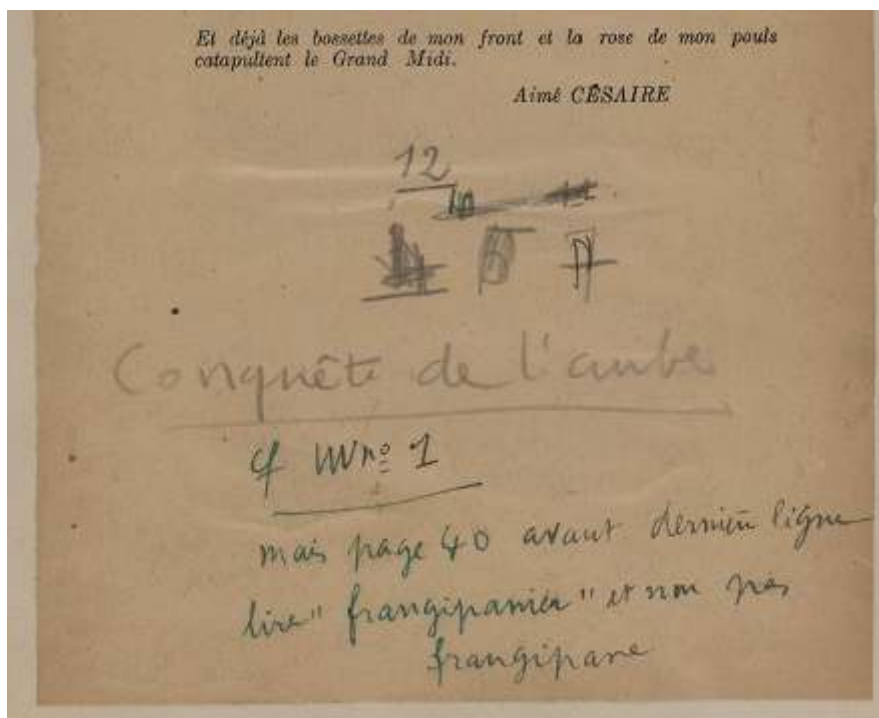 Et déjà les bossettes de mon front et la rose de mon pouls
catapultent le Grand Midi.
Aimé CÉSAIRE
12
10
Conquête de l'aube
cf VVV nº 1
mais page 40 avant dernière ligne
lire "frangipanier" et non pas
frangipane